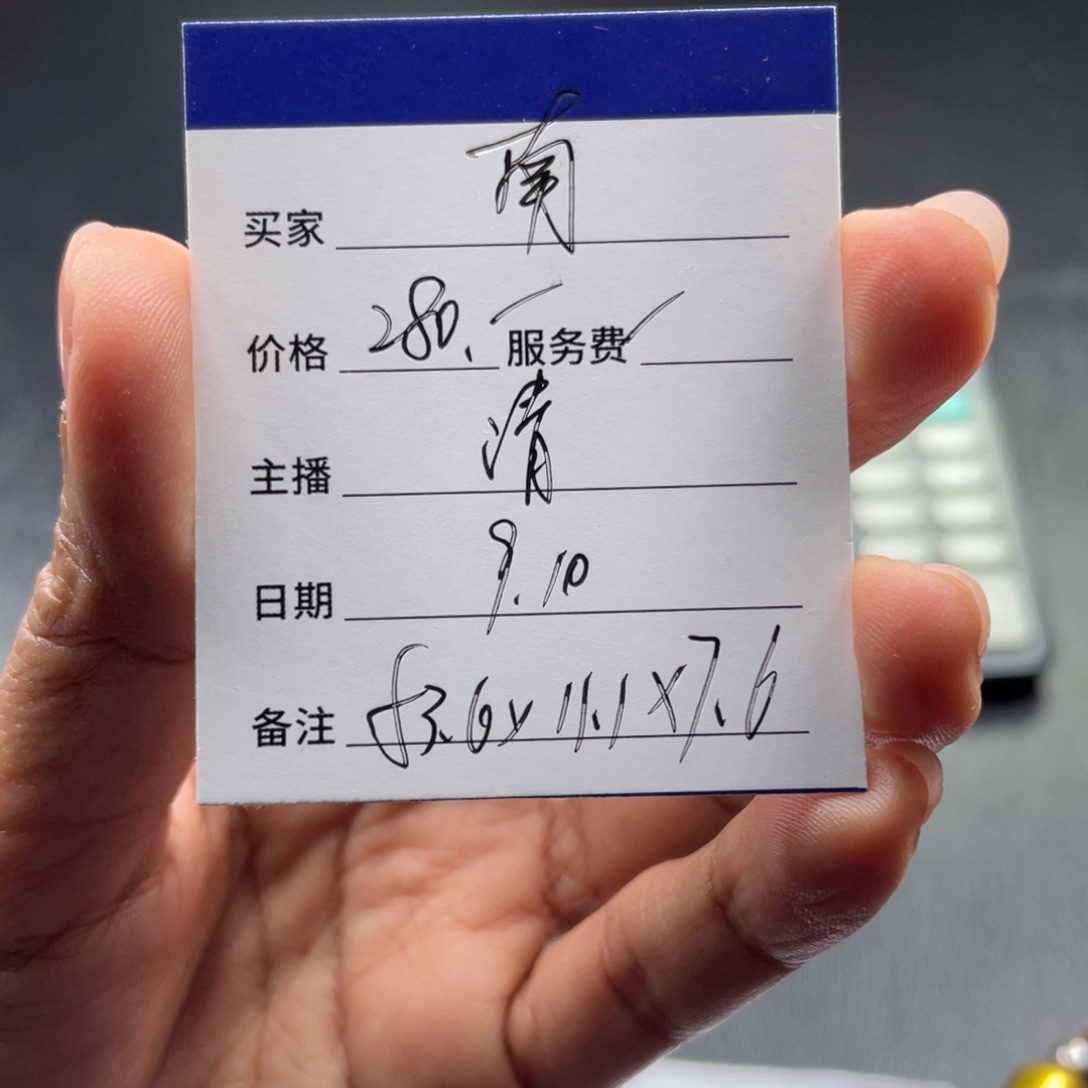 买家 南
价格 280. 服务费
主播 清
日期 9.10
备注 53.6x11.1x7.6